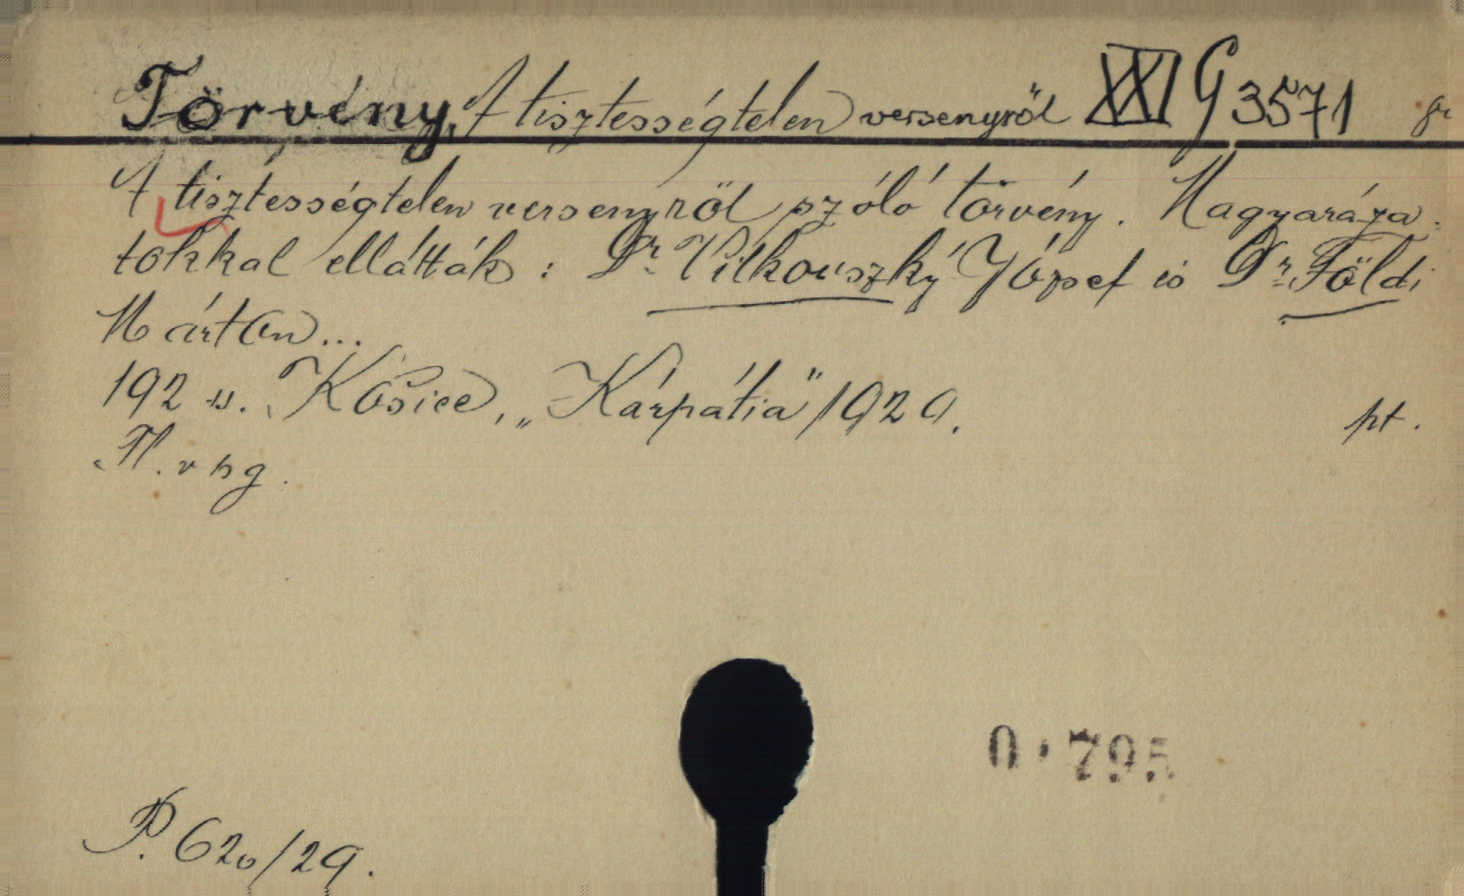 Törvény, A tisztességtelen versenyről XXI G 3571
A tisztességtelen versenyről szóló törvény. Magyaráza-
tokkal ellátták: Dr. Vitkouszký József és Dr. Földi
Márton...
192 s. Košice, „Kárpátia" 1929.
pt.
P. 620/29.